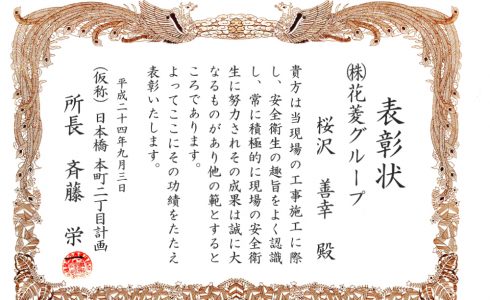 表彰状
㈱花菱グループ
桜沢 善幸 殿
貴方は当現場の工事施工に際
し、安全衛生の趣旨をよく認識
し、常に積極的に現場の安全衛
生に努力されその成果は誠に大
なるものがあり他の範とすると
ころであります。
よってここにその功績をたたえ
表彰いたします。
平成二十四年九月三日
（仮称）日本橋本町二丁目計画
所長 斉藤 栄一